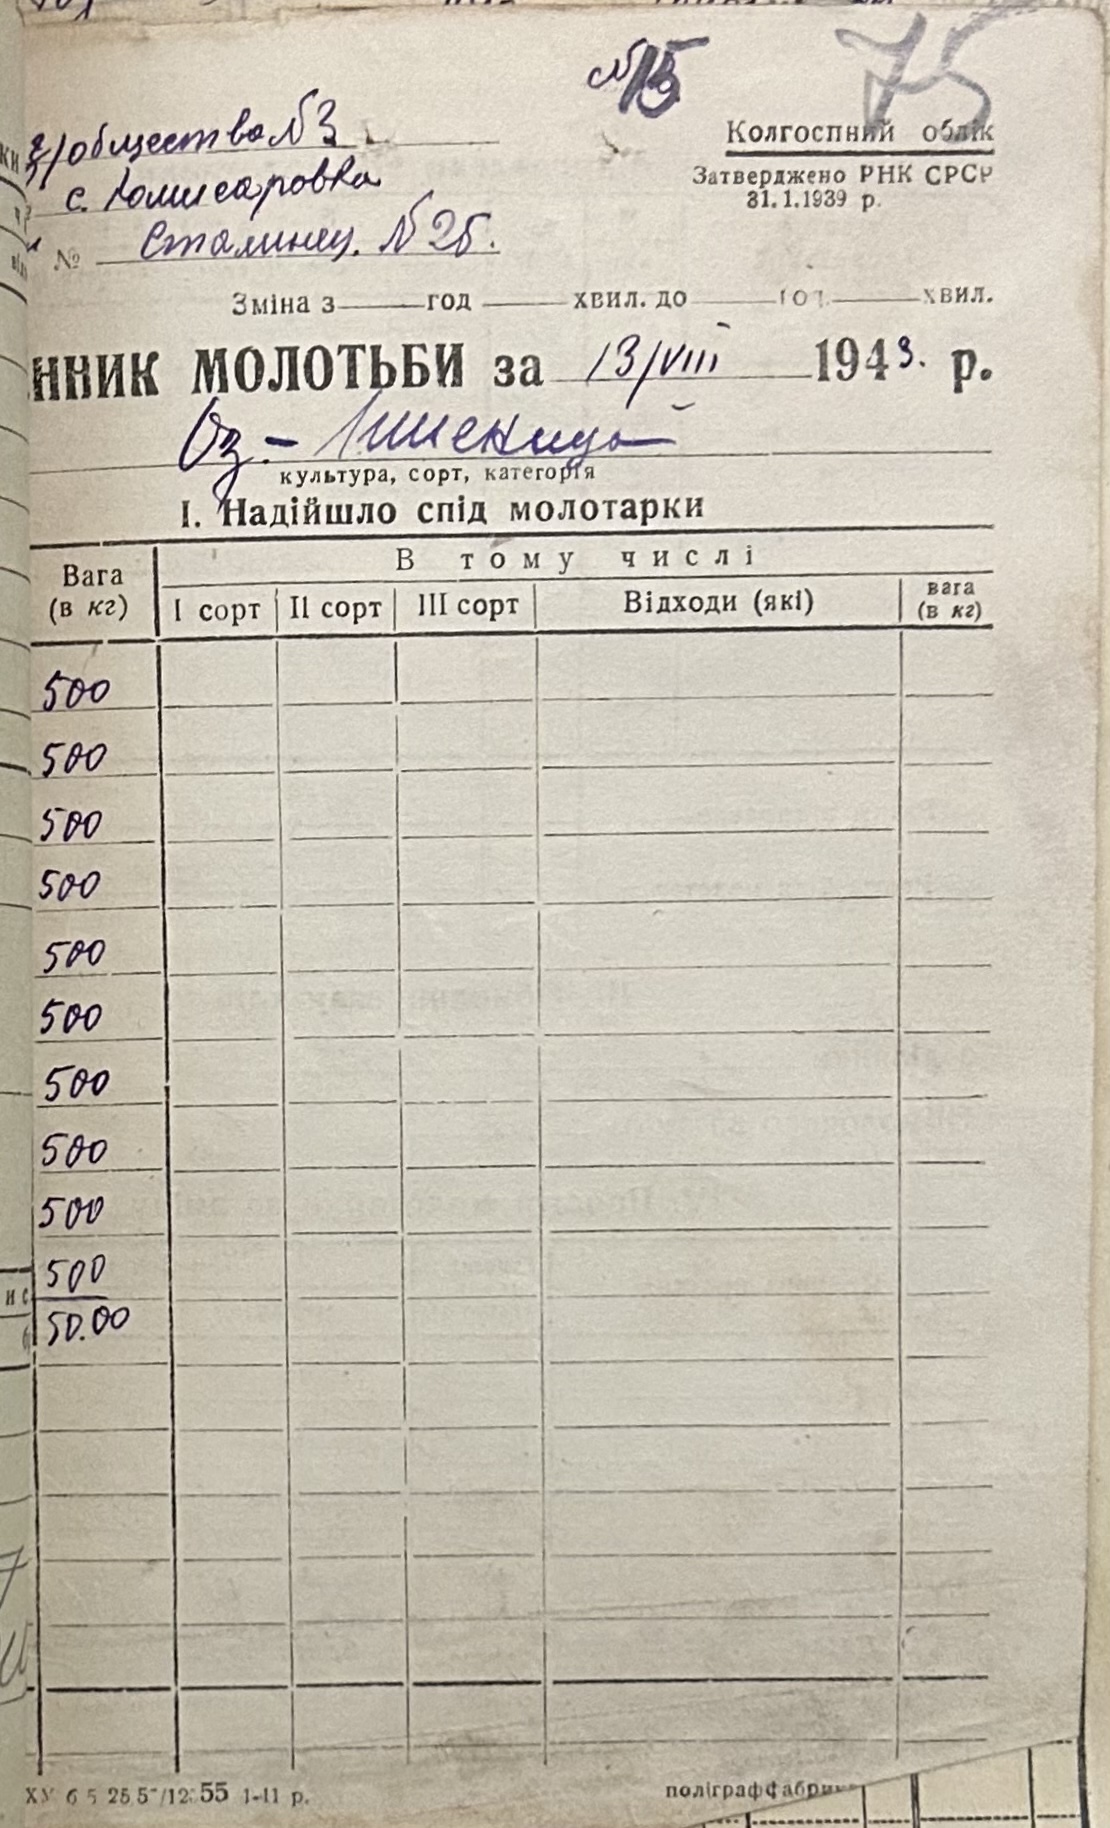 № 15
75
з/общества № 3
с. Комисаровка
№ Сталинец. № 25.
Колгоспний облік
Затверджено РНК СРСР
31.1.1939 р.
Зміна з год хвил. до год. хвил.
нник МОЛОТЬБИ за 13/VIII 1943. р.
Оз. - Пшеница
культура, сорт, категорія
І. Надійшло спід молотарки
Вага (в кг)
В тому числі
І сорт ІІ сорт ІІІ сорт Відходи (які) вага (в кг)
500
500
500
500
500
500
500
500
500
500
50.00
1-11 р.
поліграффабрика